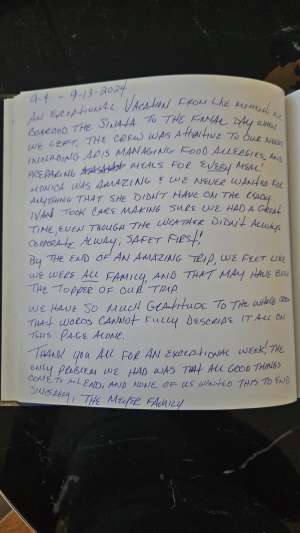 9-6 - 9-13-2024
AN EXCEPTIONAL VACATION FROM THE MOMENT WE
BOARDED THE SINATA TO THE FINAL DAY WHEN
WE LEFT. THE CREW WAS ATTENTIVE TO OUR NEEDS,
INCLUDING MANAGING FOOD ALLERGIES, AND
PREPARING MEALS FOR EVERY MEAL!
MONICA WAS AMAZING & WE NEVER WANTED FOR
ANYTHING THAT SHE DIDN'T HAVE ON THE READY.
IVAN TOOK CARE MAKING SURE WE HAD A GREAT
TIME, EVEN THOUGH THE WEATHER DIDN'T ALWAYS
COOPERATE. ALWAY, SAFETY FIRST!
BY THE END OF AN AMAZING TRIP, WE FELT LIKE
WE WERE ALL FAMILY AND THAT MAY HAVE BEEN
THE TOPPER OF OUR TRIP.
WE HAVE SO MUCH GRATITUDE TO THE WHOLE CREW
THAT WORDS CANNOT FULLY DESCRIBE IT ALL ON
THIS PAGE ALONE.
THANK YOU ALL FOR AN EXCEPTIONAL WEEK! THE
ONLY PROBLEM WE HAD WAS THAT ALL GOOD THINGS
COME TO AN END, AND NONE OF US WANTED THIS TO END
SINCERELY, THE MEYER FAMILY